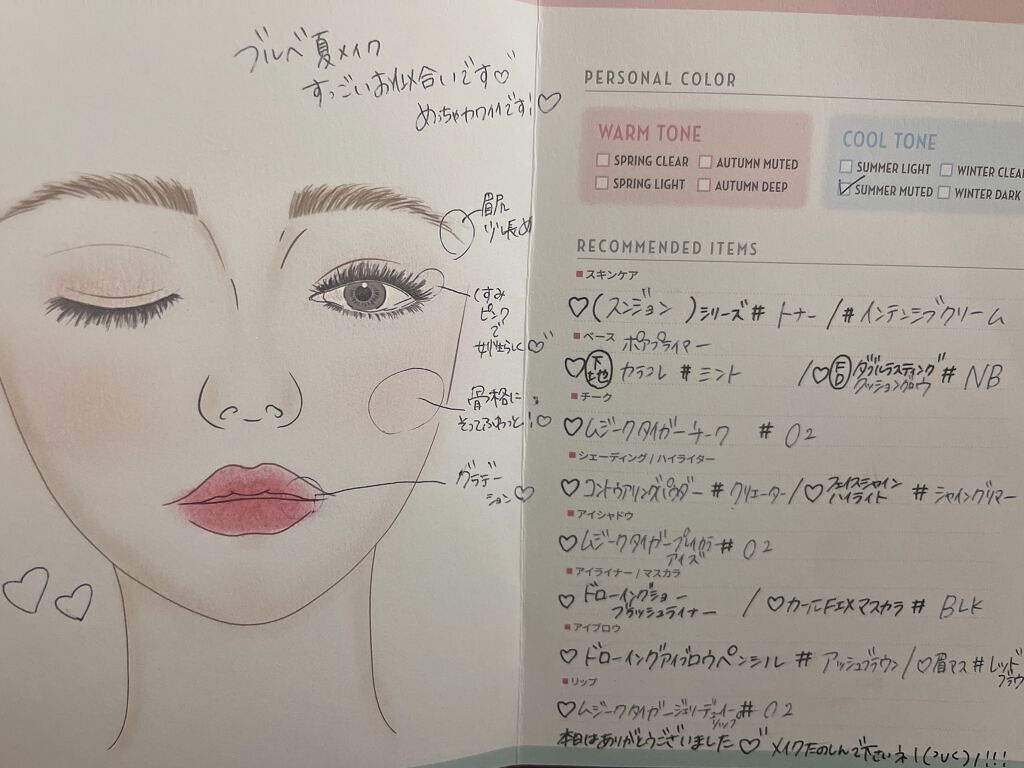 ブルベ夏メイク
すっごいお似合いです♡
めっちゃカワイイです!♡
眉尻
少し長め
くすみ
ピンク
で
女性らしく♡
骨格に
そってふわっと!♡
グラデー
ション♡
PERSONAL COLOR
WARM TONE
SPRING CLEAR AUTUMN MUTED
SPRING LIGHT AUTUMN DEEP
COOL TONE
SUMMER LIGHT WINTER CLEAR
SUMMER MUTED WINTER DARK
RECOMMENDED ITEMS
スキンケア
♡(スンジョン)シリーズ# トナー/#インテンシブクリーム
ベース
ポアプライマー
♡下地 カラコレ #ミント /♡FD ダブルラスティング
クッショングロウ #NB
チーク
♡ムジークタイガーチーク #02
シェーディング/ハイライター
♡コントゥアリングパウダー #クリエーター/♡フェイスシャイン
ハイライト #シャイングリマー
アイシャドウ
♡ムジークタイガープレイカラー
アイズ #02
アイライナー/マスカラ
♡ドローイングショー
ブラッシュライナー /♡カールFIXマスカラ# BLK
アイブロウ
♡ドローイングアイブロウペンシル #アッシュブラウン/♡眉マス#レッド
ブラウ
リップ
♡ムジークタイガージェリーデューイー
リップ #02
本日はありがとうございました♡メイクたのしんで下さいネ!!!!